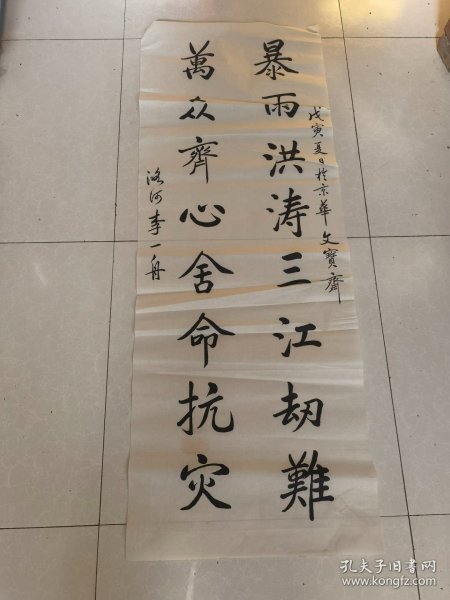 暴雨洪涛三江劫難
萬众齊心舍命抗灾
戊寅夏日於京華文寶齋
洛河李一舟
孔夫子旧书网
www.kongfz.com